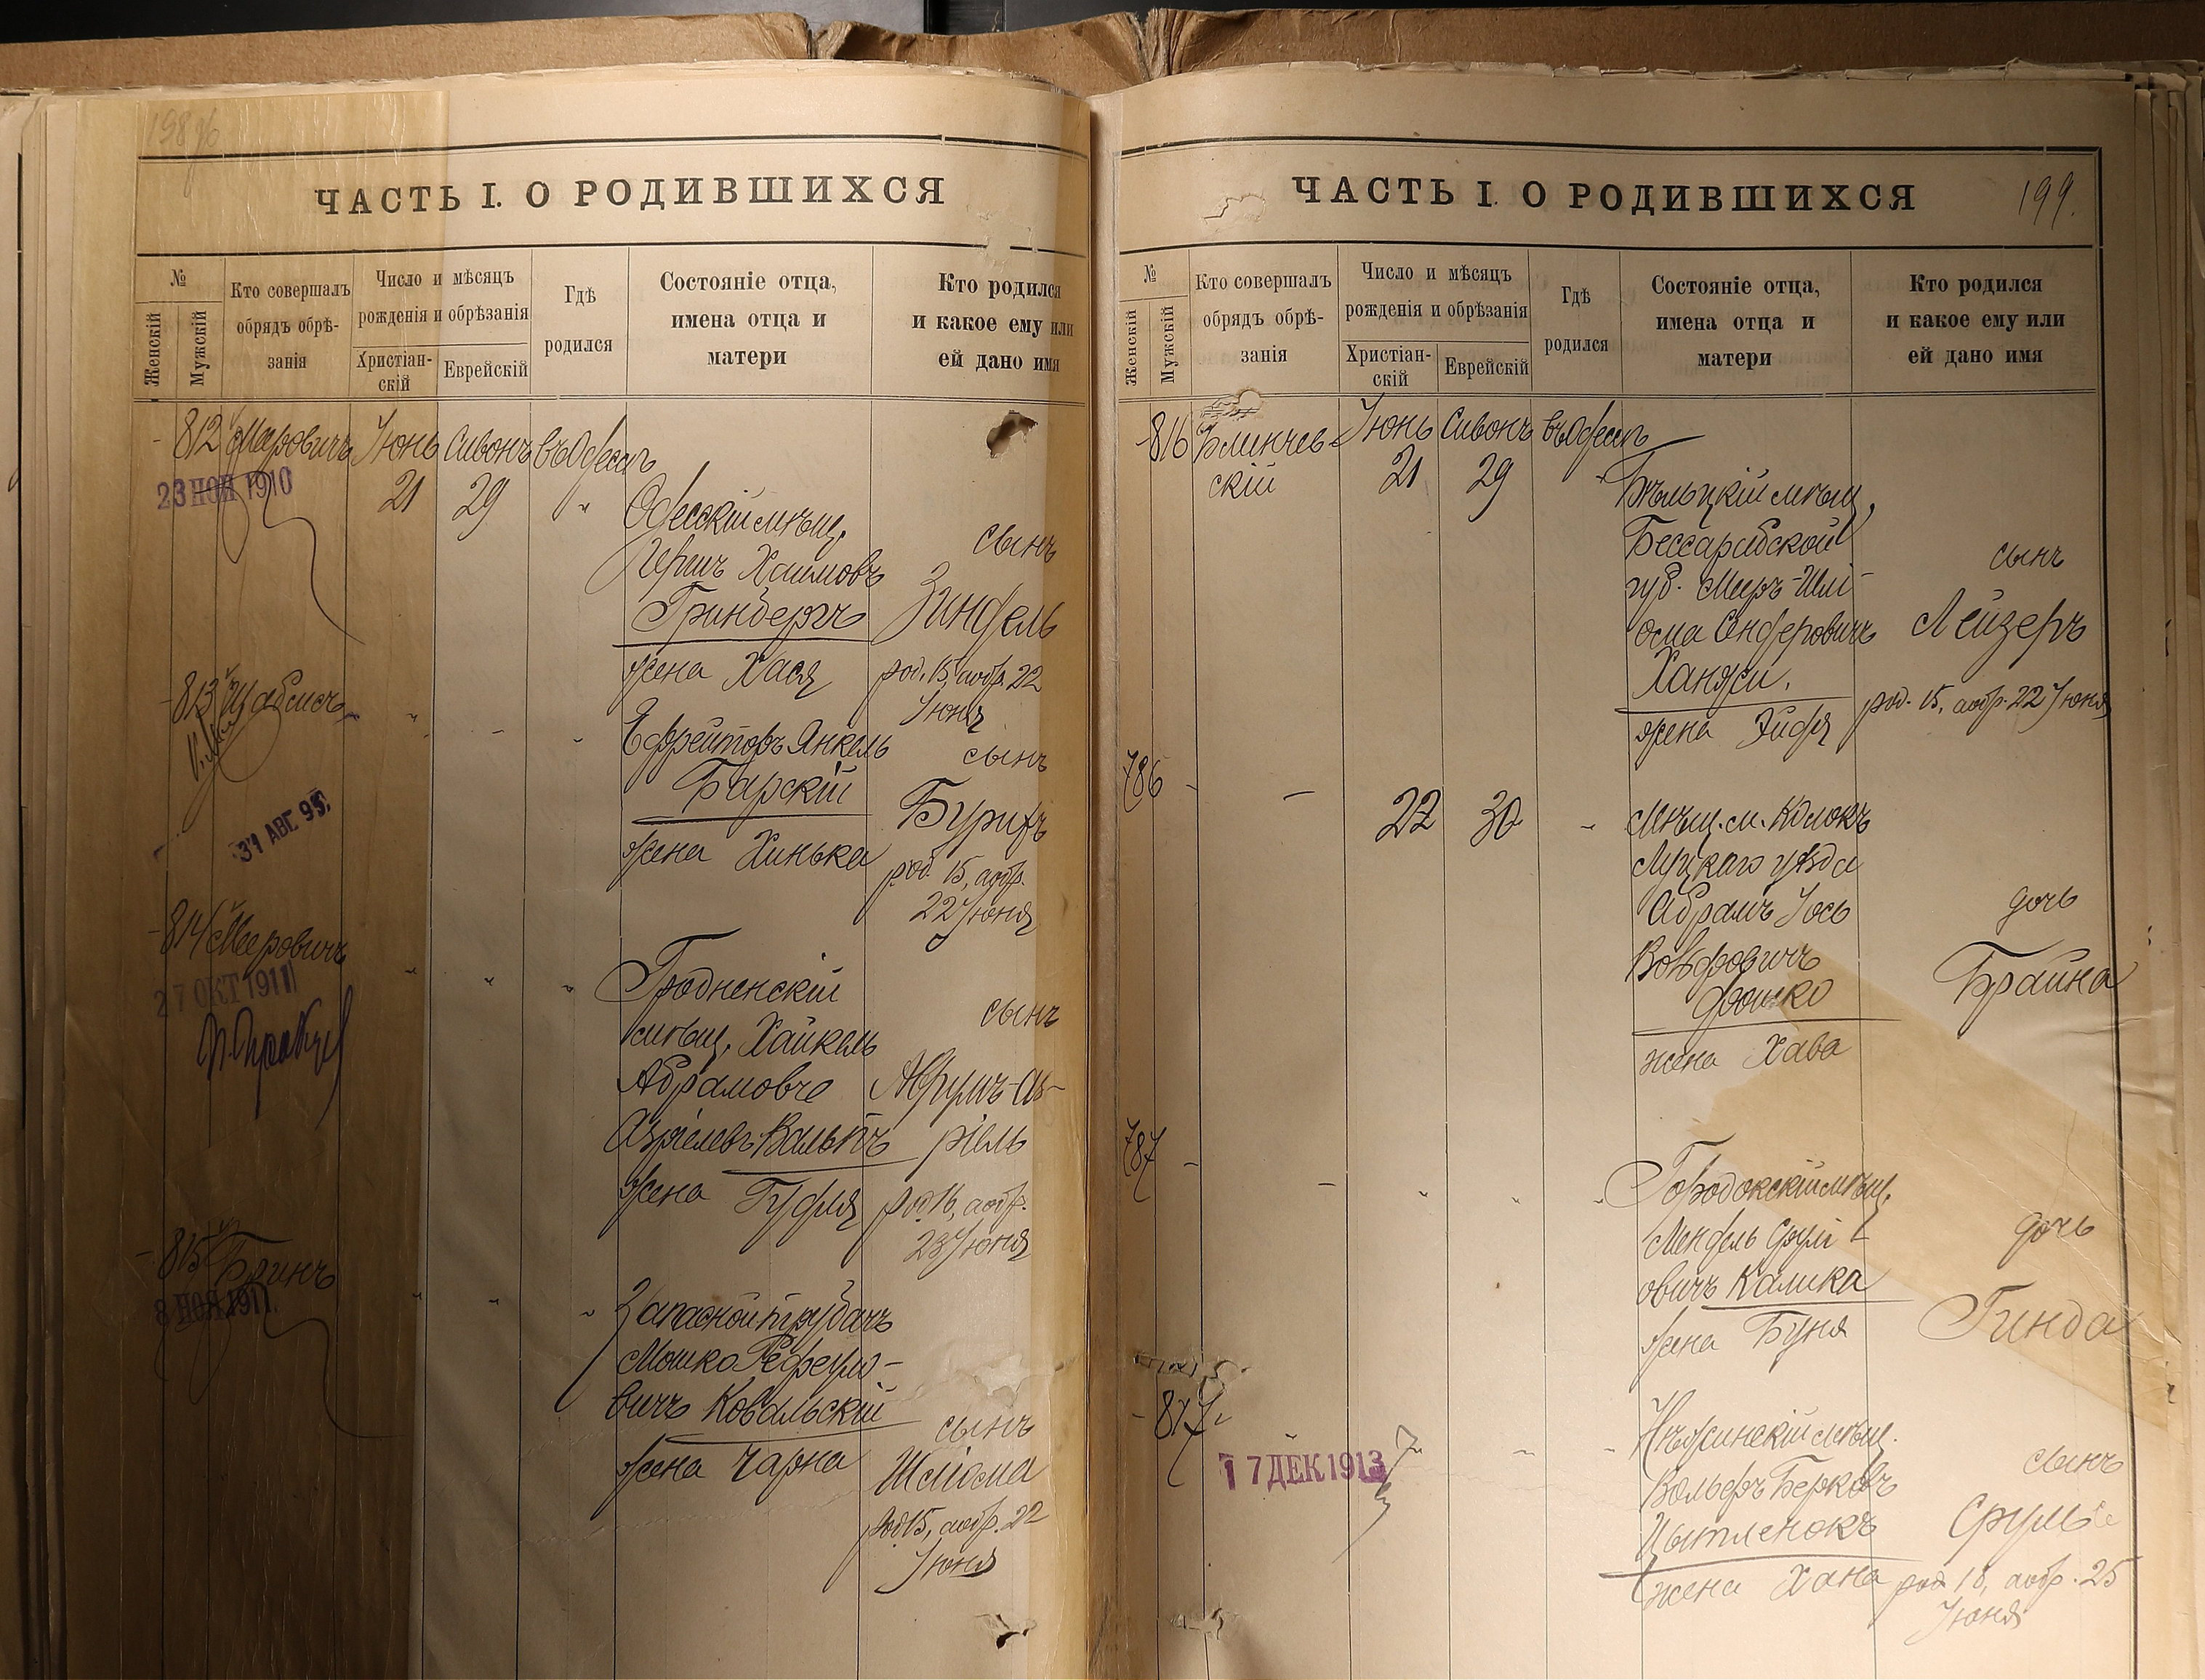 ЧАСТЬ I. О РОДИВШИХСЯ
№
Женскій
Мужскій
Кто совершалъ
обрядъ обрѣ-
занія
Число и мѣсяцъ
рожденія и обрѣзанія
Христіан-
скій
Еврейскій
Гдѣ
родился
Состояніе отца,
имена отца и
матери
Кто родился
и какое ему или
ей дано имя
812 Меровичъ Іюнь Сивонъ въ Одессѣ
23 НОЯ 1910
21 29 "
Одесскій мѣщ.
Гершъ Хаимовъ
Гринбергъ
жена Хася
сынъ
Зиндель
род. 15, аобр. 22
Іюня
813
31 АВГ. 95
Ефрейторъ Янкель
Барскій
жена Хинька
сынъ
Бурихъ
род. 15, аобр.
22 Іюня
814 Мееровичъ
27 ОКТ 1911
Гродненскій
мѣщ. Хайкель
Абрамовъ
жена
сынъ
Аврумъ-Аз-
ріель
род 16, аобр.
23 Іюня
815 Бринъ
8 НОЯ 1911.
Запасной трубачъ
Мошко
вичъ Ковальскій
жена Чарна
сынъ
Шліома
род 15, аобр. 22
Іюня
ЧАСТЬ I. О РОДИВШИХСЯ
199.
№
Женскій
Мужскій
Кто совершалъ
обрядъ обрѣ-
занія
Число и мѣсяцъ
рожденія и обрѣзанія
Христіан-
скій
Еврейскій
Гдѣ
родился
Состояніе отца,
имена отца и
матери
Кто родился
и какое ему или
ей дано имя
816 Блинчев- Іюнь Сивонъ въ Одессѣ
скій 21 29
Бѣльцкій мѣщ.
Бессарабской
губ. Меръ-Шлі-
ома Сендеровичъ
жена Эйдя
сынъ
Лейзеръ
род. 15, аобр. 22 Іюня
786 - - 22 30 "
Мѣщ. м. Колокъ
Луцкаго уѣзда
Абрамъ Іось
Вольфовичъ
Фошко
жена Хава
дочь
Брайна
787 -
Городокскій мѣщ.
Мендель Срулі-
овичъ Калика
жена Буня
дочь
Гинда
- 817
17 ДЕК 1913
Нѣжинскій мѣщ.
Вольфъ Берковъ
Цытленокъ
жена Хана
сынъ
Сруль
род 18, аобр. 25
Іюня